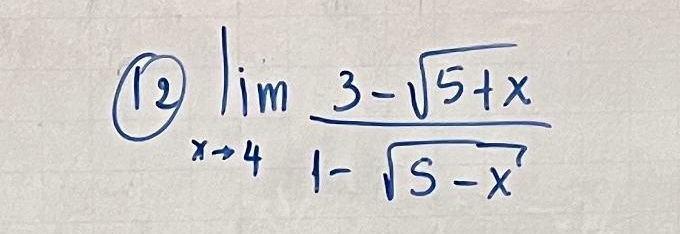 ⑫ lim x→4 (3-√(5+x))/(1-√(5-x))